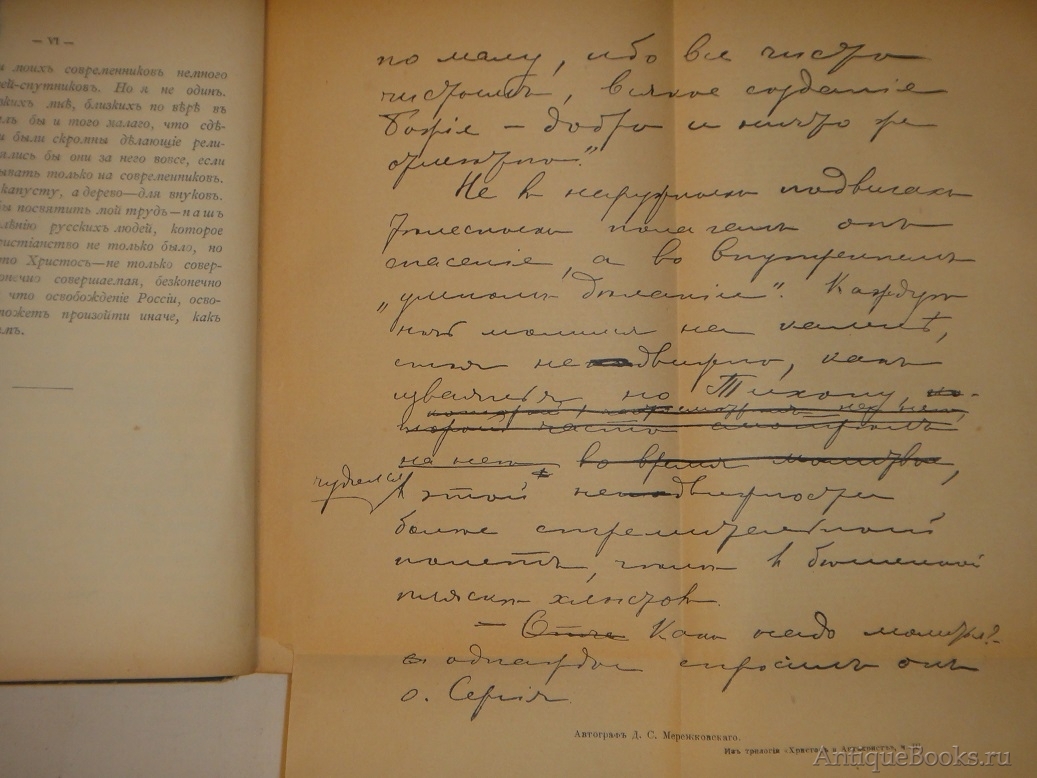 — VI —
моихъ современниковъ немного
ей-спутниковъ. Но я не одинъ.
мнѣ, близкихъ по вѣрѣ въ
бы и того малаго, что сдѣ-
были скромны дѣлающіе рели-
ялись бы они за него вовсе, если
ывать только на современниковъ.
капусту, а дерево—для внуковъ.
посвятить мой трудъ—нашъ
лѣнію русскихъ людей, которое
ристіанство не только было, но
то Христосъ—не только совер-
конечно совершаемая, безконечно
что освобожденіе Россіи, осво-
можетъ произойти иначе, какъ
по малу, ибо все чисто
чистымъ, всякое созданіе
Божіе — добро и ничто не
Не въ наружныхъ подвигахъ
тѣлесныхъ полагалъ онъ
спасеніе, а во внутреннемъ
„умномъ дѣланіи“. Каждую
ночь молился на камнѣ,
стоя неподвижно, какъ
изваянье, но Тихону
на него во время молитвы,
чудился
въ этой неподвижности
болѣе стремительный
полетъ, чѣмъ въ бѣшеной
пляскѣ хлыстовъ.
— Отче Какъ надо молиться?
однажды спросилъ онъ
о. Сергія
Автографъ Д. С. Мережковскаго.
Изъ трилогіи «Христосъ и Антихристъ», ч. III.
AntiqueBooks.ru